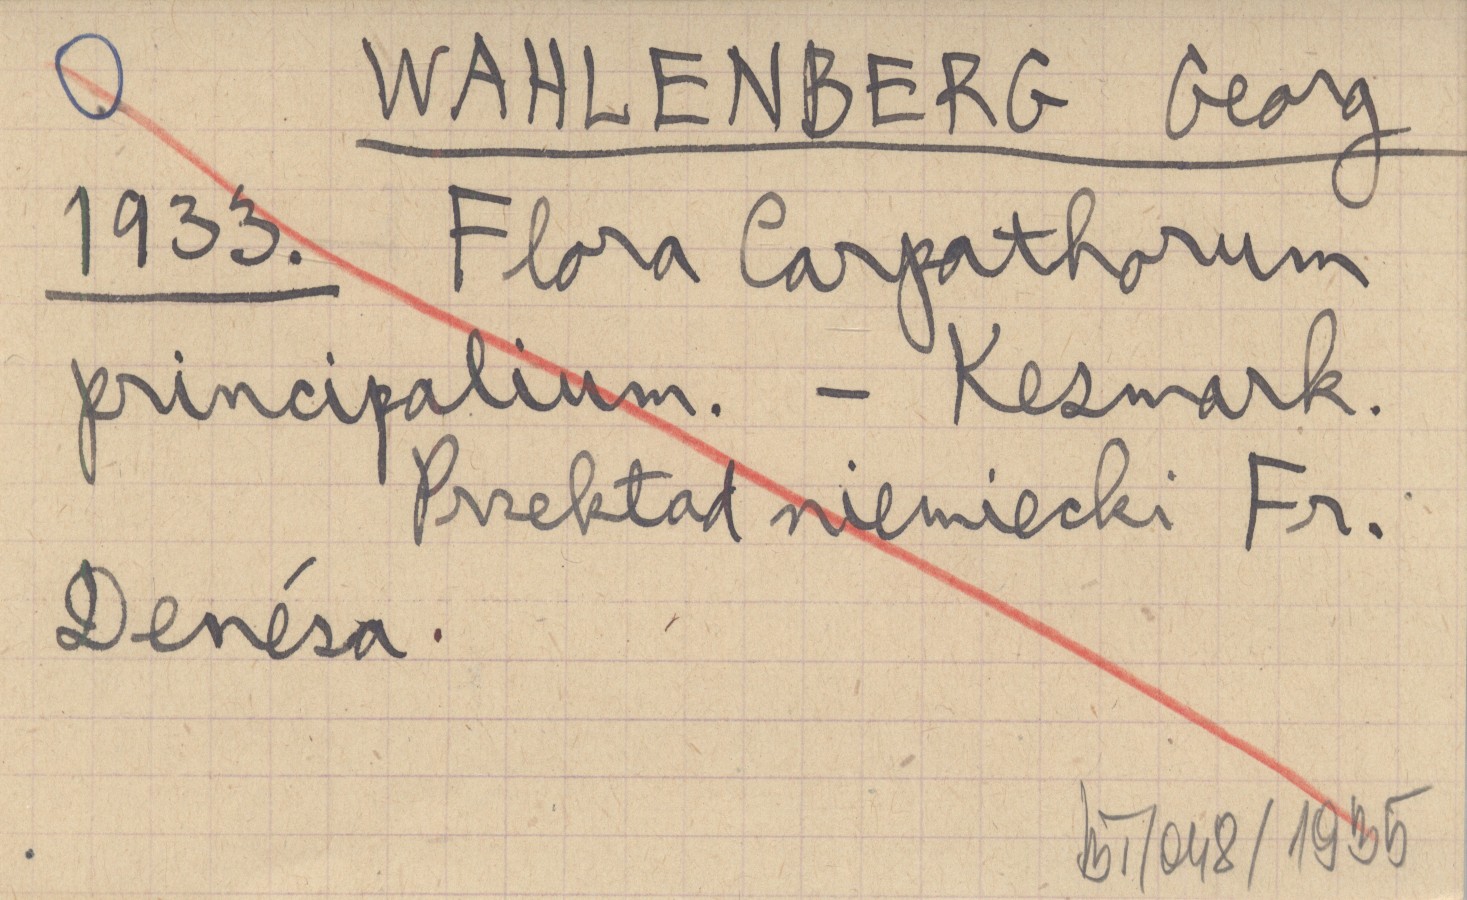 WAHLENBERG Georg
1933. Flora Carpathorum
principalium. – Kesmark.
Przekład niemiecki Fr.
Denésa.
BT/048/1935